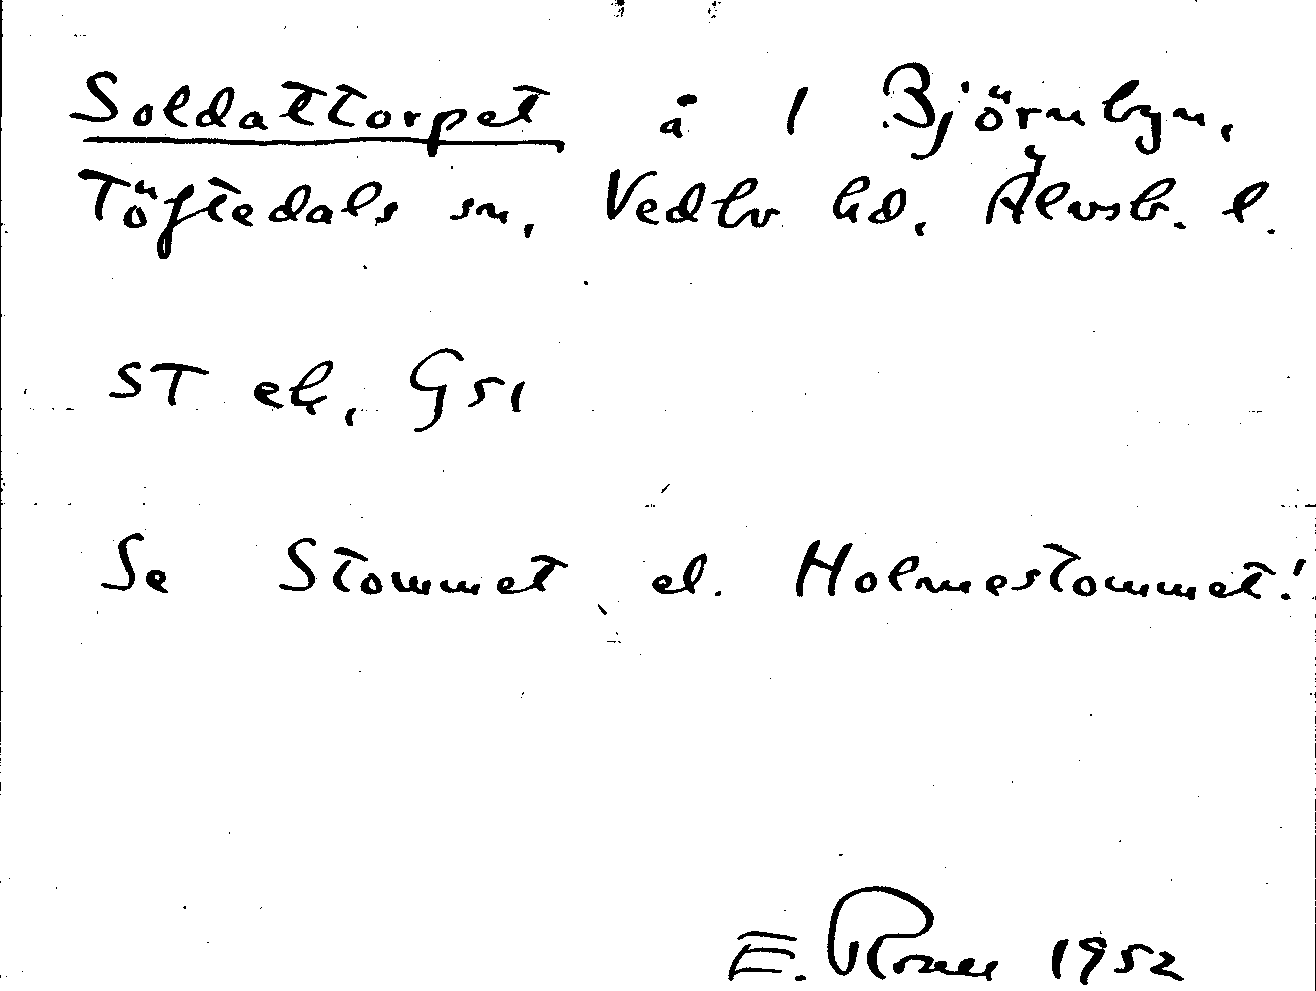 Soldattorpet å 1 Björnbyn,
Töftedals sn, Vedbo hd, Älvsb. l.
ST ek, G51
Se Stommet el. Holmestommet!
E. 1952